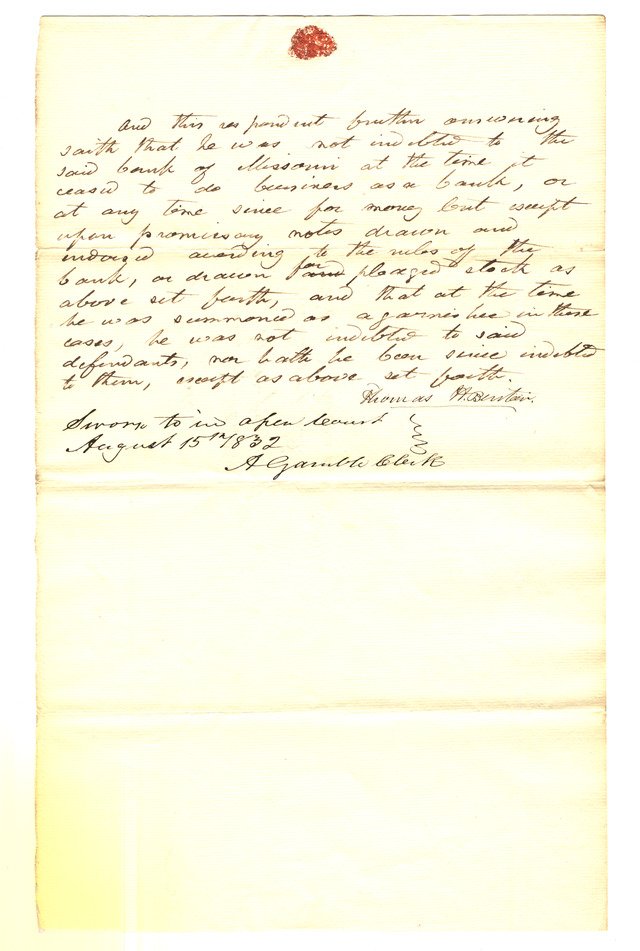 And this respondent further answering
saith that he was not indebted to the
said bank of Missouri at the time it
ceased to do business as a bank, or
at any time since for money lent except
upon promissory notes drawn and
indorsed according to the rules of the
bank, or drawn for pledged stock as
above set forth, and that at the time
he was summoned as a garnishee in these
cases, he was not indebted to said
defendants, nor hath he been since indebted
to them, except as above set forth.
Thomas H. Benton.
Sworn to in open Court
August 15th 1832
A Gamble Clerk